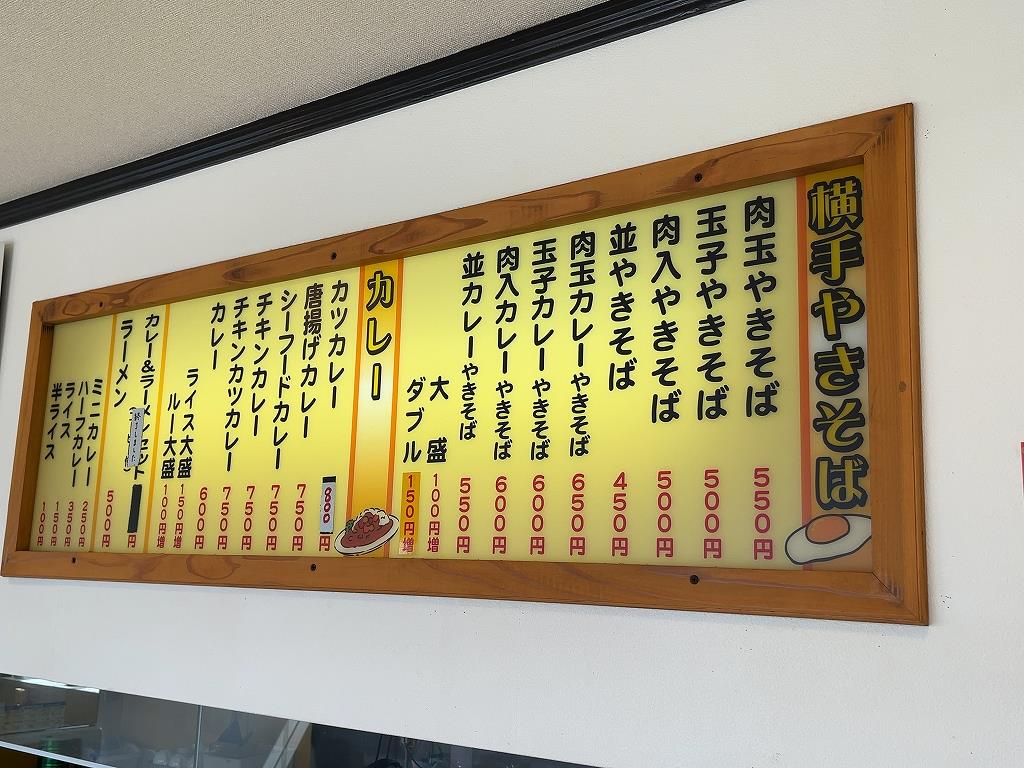 横手やきそば
肉玉やきそば 550円
玉子やきそば 500円
肉入やきそば 500円
並やきそば 450円
肉玉カレーやきそば 650円
玉子カレーやきそば 600円
肉入カレーやきそば 600円
並カレーやきそば 550円
大盛 100円増
ダブル 150円増
カレー
カツカレー 800円
唐揚げカレー 750円
シーフードカレー 750円
チキンカレー 750円
チキンカツカレー 750円
カレー 600円
ライス大盛 150円増
ルー大盛 100円増
カレー&ラーメンセット 円
終了しました
ラーメン 500円
ミニカレー 250円
ハーフカレー 350円
ライス 150円
半ライス 100円